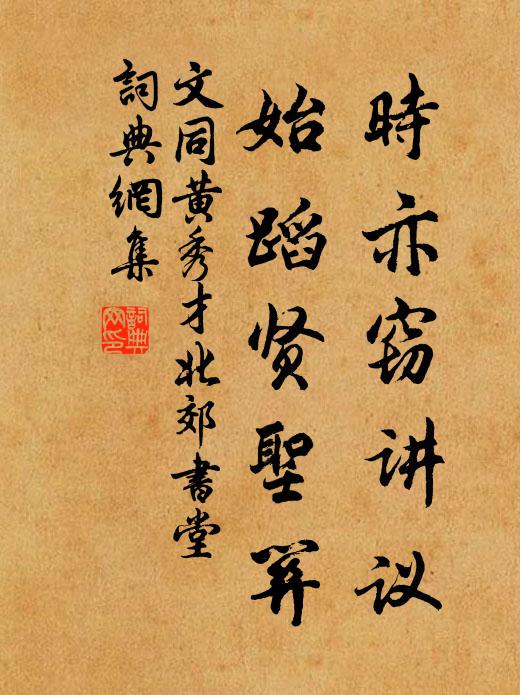 時亦窃讲议
始蹈贤聖
文同黄秀才北郊書堂
詞典網集
詞典网印